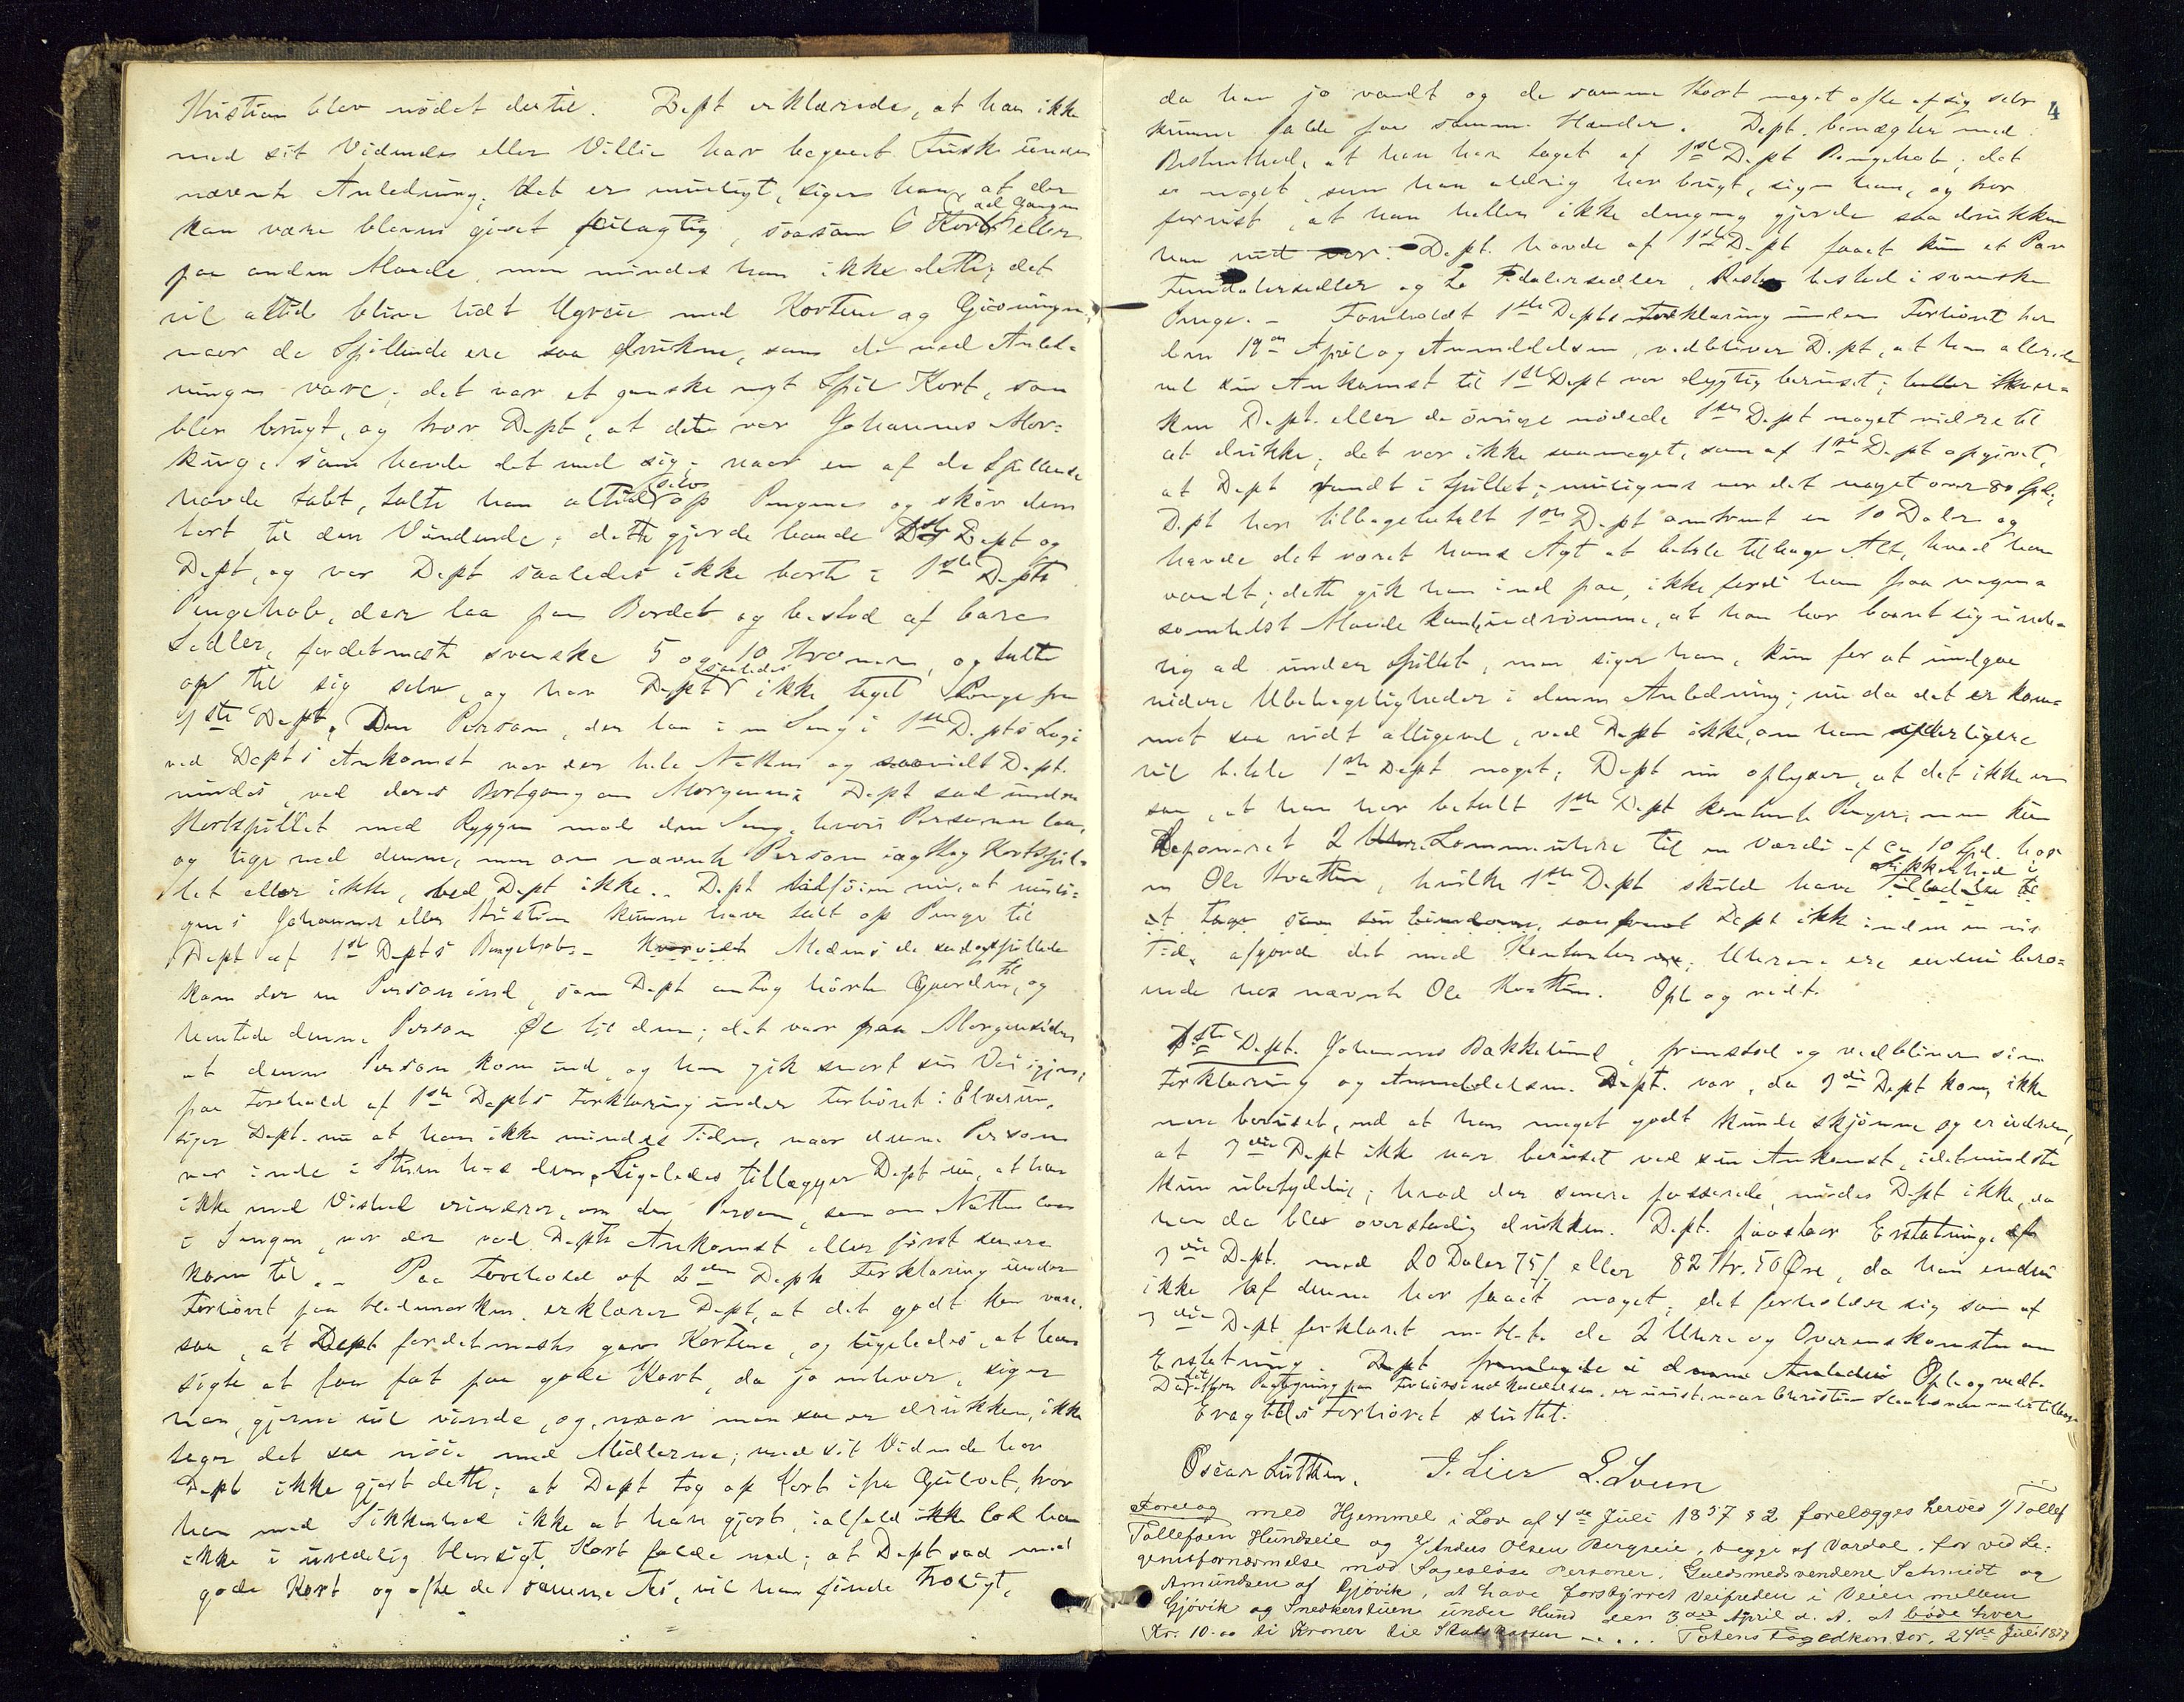 Kristian blev nödet dertil. Dept erklærede, at han ikke
med sit Vidende eller Villie har begaaet Fusk under
nævnte Anledning; det er muligt, siger han, at der
kan være bleven givet feilagtig, saasom 6 Kort ad Gangen eller
paa anden Maade, men mindes han ikke dette; det
vil altid blive lidt Ugreie med Kortene og Givningen,
naar de Spillende ere saa drukne, som de ved Anled-
ningen vare; det var et ganske nyt Spil Kort, som
blev brugt, og tror Dept, at det var Johannes
som havde det med sig; naar en af de Spillende
havde tabt, talte han altid selv op Pengene og skjöv dem
bort til den Vindende; dette gjorde baade 1ste Dept og
Dept, og var Dept saaledes ikke borte i 1ste Depts
Pengehob, der laa paa Bordet og bestod af bare
Sedler, fordetmeste svenske 5 og 10 Kroner, og talte
op til sig selv, og har Dept saaledes ikke taget Penge fra
1ste Dept. Den Person, der laa i en Seng i 1ste Depts Logi
ved Depts Ankomst var der hele Natten og saavidt Dept.
mindes, ved deres Bortgang om Morgenen. Dept sad under
Kortspillet med Ryggen mod den Seng, hvori Personen laa,
og lige ved denne, men om nævnte Person iagttog Kortspil-
let eller ikke, ved Dept ikke. Dept tilföier nu, at muli-
gens Johannes eller Kristian kunne have talt op Penge til
Dept af 1ste Depts Pengehob. - Medens de endog spillede
kom der en Person ind, som Dept antog hörte Gaarden til, og
hentede denne Person Öl til dem; det var paa Morgensiden
at denne Person kom ind, og han gik snart sin Vei igjen;
paa Forehold af 1ste Depts Forklaring under Forhöret i Elverum,
siger Dept. nu at han ikke mindes Tiden, naar denne Person
var inde i Stuen hos dem. Ligeledes tillægger Dept nu, at han
ikke med Vished erindrer, om den Person, som om Natten laa
i Sengen, var der ved Depts Ankomst eller först senere
kom til. - Paa Forehold af 2den Depts Forklaring under
Forhöret paa Hedemarken erklærer Dept, at det godt kan være
saa, at Dept fordetmeste gav Kortene, og ligeledes, at han
sögte at faa fat paa gode Kort, da jo enhver, siger
han, gjerne vil vinde, og, naar man saa er drukken, ikke
tager det saa nöie med Midlerne; med sit Vidende har
Dept ikke gjort dette; at Dept tog op Kort ifra Gulvet, tror
han med Sikkerhed ikke at have gjort, ialfald lod han
ikke i uredelig Hensigt Kort falde ned; at Dept sad med
gode Kort og ofte de samme Es, vil han finde troligt,
4
da han jo vandt og de samme Kort meget ofte af sig selv
kunne falde paa samme Hænder. Dept. benægter med
Bestemthed, at han har taget af 1ste Dept Pengehob; det
er noget, som han aldrig har brugt, siger han, og tror
forvist, at han heller ikke dengang gjorde saa drukken
han end var. Dept. havde af 1ste Dept faaet kun et Par
Femdalersedler og to Tidalersedler, Resten bestod i svenske
Penge. - Foreholdt 1ste Depts Forklaring under Forhöret her
den 19de April og Anmeldelsen, vedbliver Dept, at han allerede
ved sin Ankomst til 1ste Dept var dygtig beruset; hver-
ken Dept. eller de övrige nödede 1ste Dept noget videre til
at drikke; det var ikke saameget, som af 1ste Dept opgivet,
at Dept vandt i Spillet; muligens var det noget over 80 Spd;
Dept har tilbagebetalt 1ste Dept omtrent en 10 Daler og
havde det været hans Agt at betale tilbage Alt, hvad han
vandt; dette gik han ind paa, ikke fordi han paa nogen
somhelst Maade kan indrömme, at han har baaret sig urede-
lig ad under Spillet, men, siger han, kun for at undgaa
videre Ubehageligheder i denne Anledning; nu da det er kom-
met saa vidt alligevel, ved Dept ikke, om han yderligere
vil betale 1ste Dept noget; Dept nu oplyser, at det ikke er
saa, at han har betalt 1ste Dept kontante Penge, men kun
deponeret 2 Lommeuhre til en Værdi af ca 10 Spd. hos
en Ole Kvatten, hvilke 1ste Dept skuld have Sikkerhed i
saafremt Dept ikke inden en vis
Tid, afgjorde det med Kontanter; Uhrene ere endnu bero-
ende hos nævnte Ole Kvatten. Opl og vedt.
1ste Dept. Johannes Bakkelund, fremstod og vedbliver sin
Forklaring og Anmeldelsen. Dept. var, da 3die Dept kom, ikke
mere beruset, end at han meget godt kunde skjönne og erindrer,
at 3die Dept ikke var beruset ved sin Ankomst, idetmindste
kun ubetydelig; hvad der senere passerede, mindes Dept ikke, da
han da blev overstadig drukken. Dept. paastaar Erstatning af
3die Dept. med 20 Daler 75 ß eller 82 Kr. 50 Öre, da han endnu
ikke af denne har faaet noget; det forholder sig som af
3die Dept forklaret m. H. t. de 2 Uhre og Overenskomsten om
Erstatning. Opl og vedt.
Paategning paa Forhörsindkaldelsen, er uvist, naar Christian kommer tilbage
Eragtedes Forhöret sluttet.
Oscar Lütken. J. Lier L. Sveen
Forelæg med Hjemmel i Lov af 4de Juli 1857 § 2 forelægges herved 1/ Tollef
Tollefsen Hundseie og 2/ Anders Olsen Bergseie, begge af Vardal, for ved Le-
gemsfornærmelse mod sageslöse Personer, Guldsmedsvendene Schmidt og
Amundsen af Gjövik, at have forstyrret Veifreden i Veien mellem
Gjövik og Snedkerstuen under Hund den 3die April d. A. at böde hver
Kr. 10.00 ti Kroner til Statskassen - . . . . Totens Fogedkontor, 24de Juli 1877